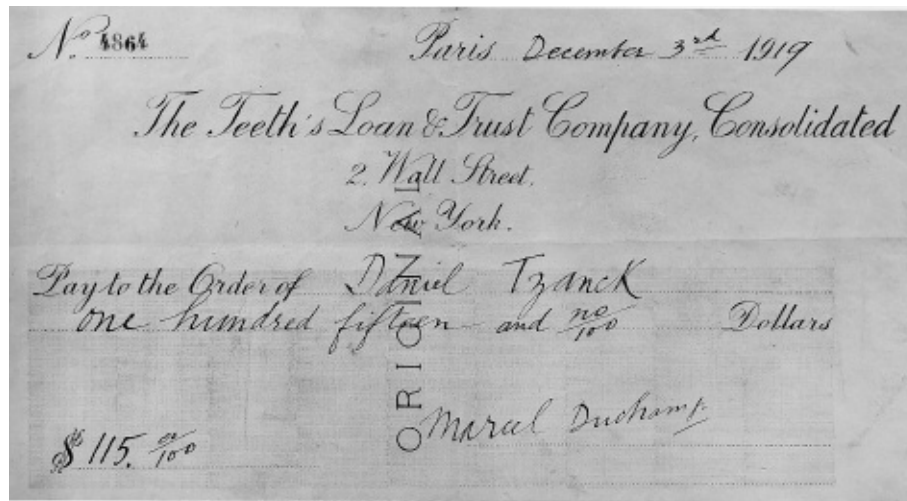 No. 4864 Paris December 3rd 1919
The Teeth's Loan & Trust Company, Consolidated
2. Wall Street.
New York.
Pay to the Order of Daniel Tzanck
one hundred fifteen and no/100 Dollars
ORIGINAL
Marcel Duchamp.
$ 115. no/100